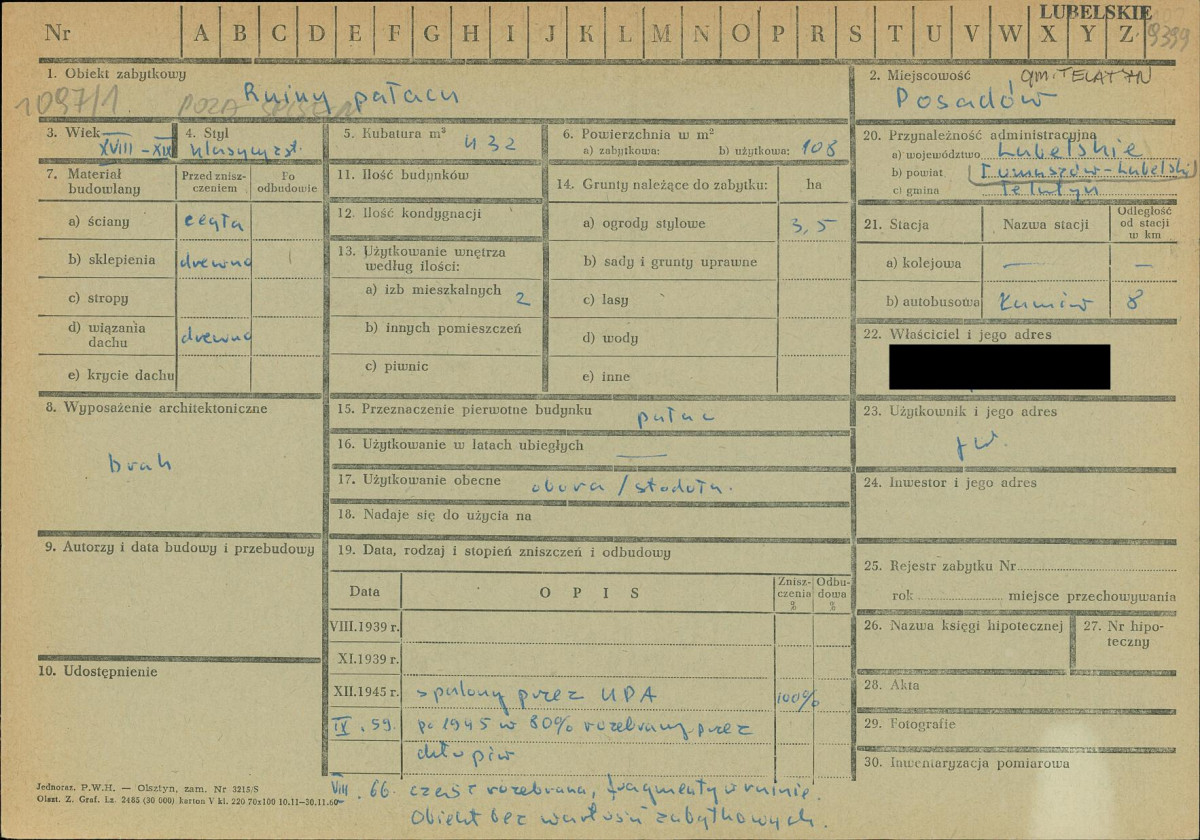 LUBELSKIE
Nr A B C D E F G H I J K L M N O P R S T U V W X Y Z 9399
1. Obiekt zabytkowy
Ruiny pałacu
1097/1
POZA SPISEM
2. Miejscowość gm. TELATYN
Posadów
3. Wiek
XVIII – XIX
4. Styl
klasycyst.
5. Kubatura m³ 432
6. Powierzchnia w m²
a) zabytkowa: b) użytkowa: 108
20. Przynależność administracyjna
a) województwo Lubelskie
b) powiat Tomaszów-Lubelski
c) gmina Telatyn
7. Materiał budowlany
Przed zniszczeniem
Po odbudowie
a) ściany cegła
b) sklepienia drewno
c) stropy
d) wiązania dachu drewno
e) krycie dachu
11. Ilość budynków
12. Ilość kondygnacji
13. Użytkowanie wnętrza
według ilości:
a) izb mieszkalnych 2
b) innych pomieszczeń
c) piwnic
14. Grunty należące do zabytku: ha
a) ogrody stylowe 3,5
b) sady i grunty uprawne
c) lasy
d) wody
e) inne
21. Stacja Nazwa stacji Odległość od stacji w km
a) kolejowa — —
b) autobusowa 8
22. Właściciel i jego adres
8. Wyposażenie architektoniczne
brak
15. Przeznaczenie pierwotne budynku pałac
16. Użytkowanie w latach ubiegłych —
17. Użytkowanie obecne obora / stodoła.
18. Nadaje się do użycia na
23. Użytkownik i jego adres
jw.
24. Inwestor i jego adres
9. Autorzy i data budowy i przebudowy
19. Data, rodzaj i stopień zniszczeń i odbudowy
Data OPIS Zniszczenia % Odbudowa %
VIII.1939 r.
XI.1939 r.
XII.1945 r. spalony przez UPA 100%
IX. 59. po 1945 w 80% rozebrany przez
chłopów
VIII. 66. część rozebrana, fragmenty w ruinie.
Obiekt bez wartości zabytkowych.
25. Rejestr zabytku Nr
rok miejsce przechowywania
26. Nazwa księgi hipotecznej
27. Nr hipoteczny
28. Akta
29. Fotografie
30. Inwentaryzacja pomiarowa
10. Udostępnienie
Jednoraz. P.W.H. — Olsztyn, zam. Nr 3215/S
Olszt. Z. Graf. Lz. 2485 (30 000) karton V kl. 220 70x100 10.11—30.11.60